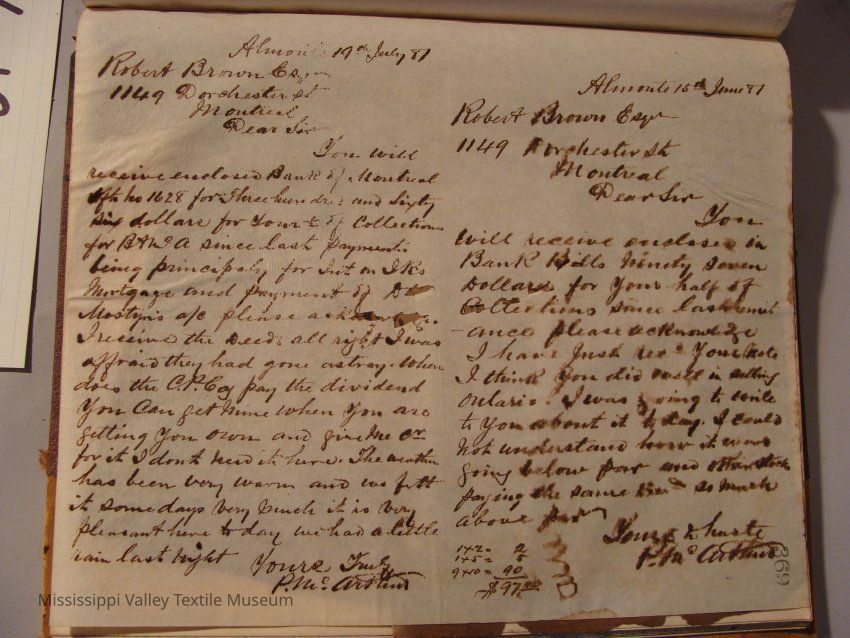 Almonte 19th July 81
Robert Brown Esq
1149 Dorchester St
Montreal
Dear Sir
You will
receive enclosed Bank of Montreal
no 1628 for Three hundred and Sixty
six dollars for Your ½ of Collections
for B & McA since last payments
being principaly for Int on
Mortgage and payment of
a/c please
I receive the Deeds all right I was
affraid they had gone astray. When
does the C.P. Coy pay the dividend
You Can get mine when You are
getting You own and give me Cr
for it I dont need it here. The weather
has been very warm and we felt
it some days Very much it is Very
pleasant here to day we had a little
rain last night
Yours Truly
P. McArthur
Almonte 15th June 81
Robert Brown Esqr
1149 Dorchester St
Montreal
Dear Sir
You
will receive enclosed in
Bank Bills Ninety Seven
Dollars for Your half of
Collections since last remit
-ance please acknowledge
I have Just recd Your note
I think You did well in selling
Ontario I was going to write
to You about it to day. I could
Not understand how it was
going below par and other stock
paying the same so much
above par
Yours in haste
P. McArthur
1 x 2 = 2
1 x 5 = 5
9 x 10 = 90
$97.00
269
Mississippi Valley Textile Museum